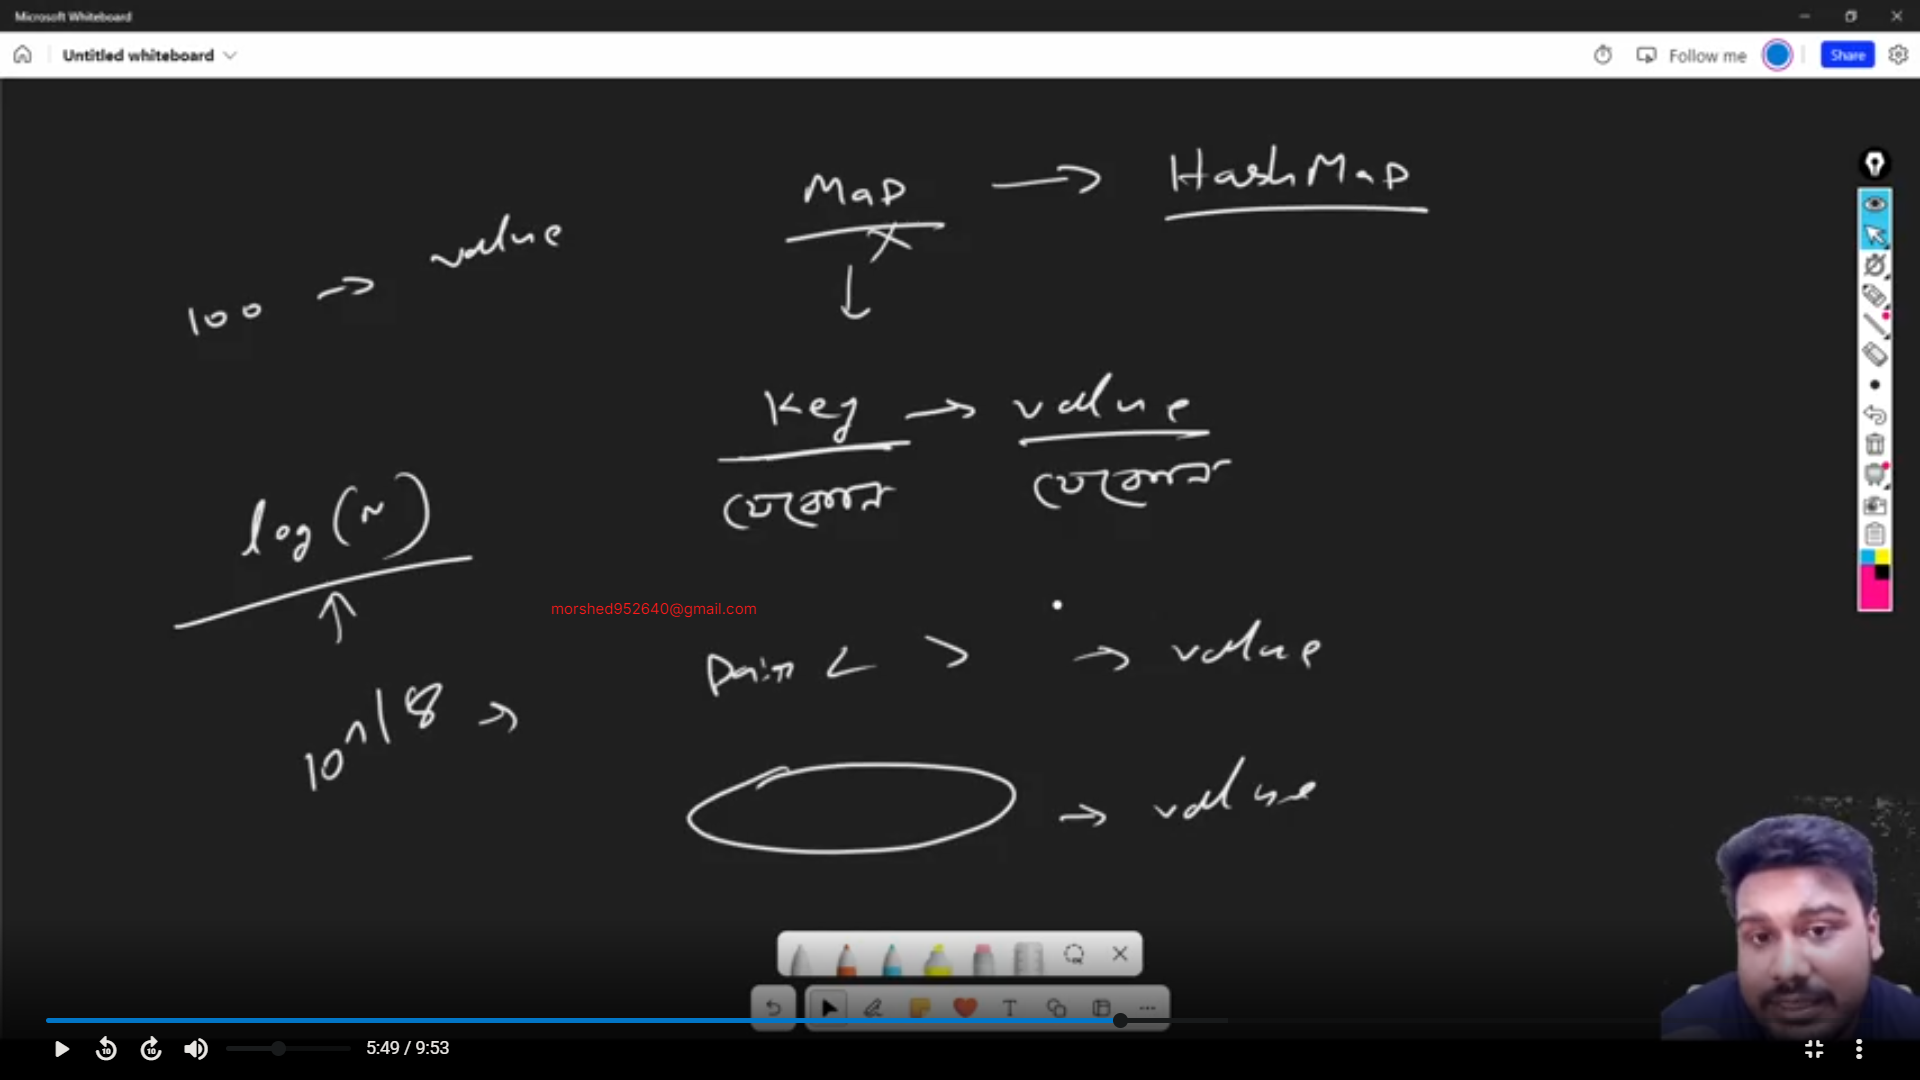 Microsoft Whiteboard
Untitled whiteboard
Follow me
Share
Map → HashMap
100 → value
Key → value
যেকোন যেকোন
log(N)
morshed952640@gmail.com
Pair < > → value
10^18 →
→ value
T
10 10 5:49 / 9:53